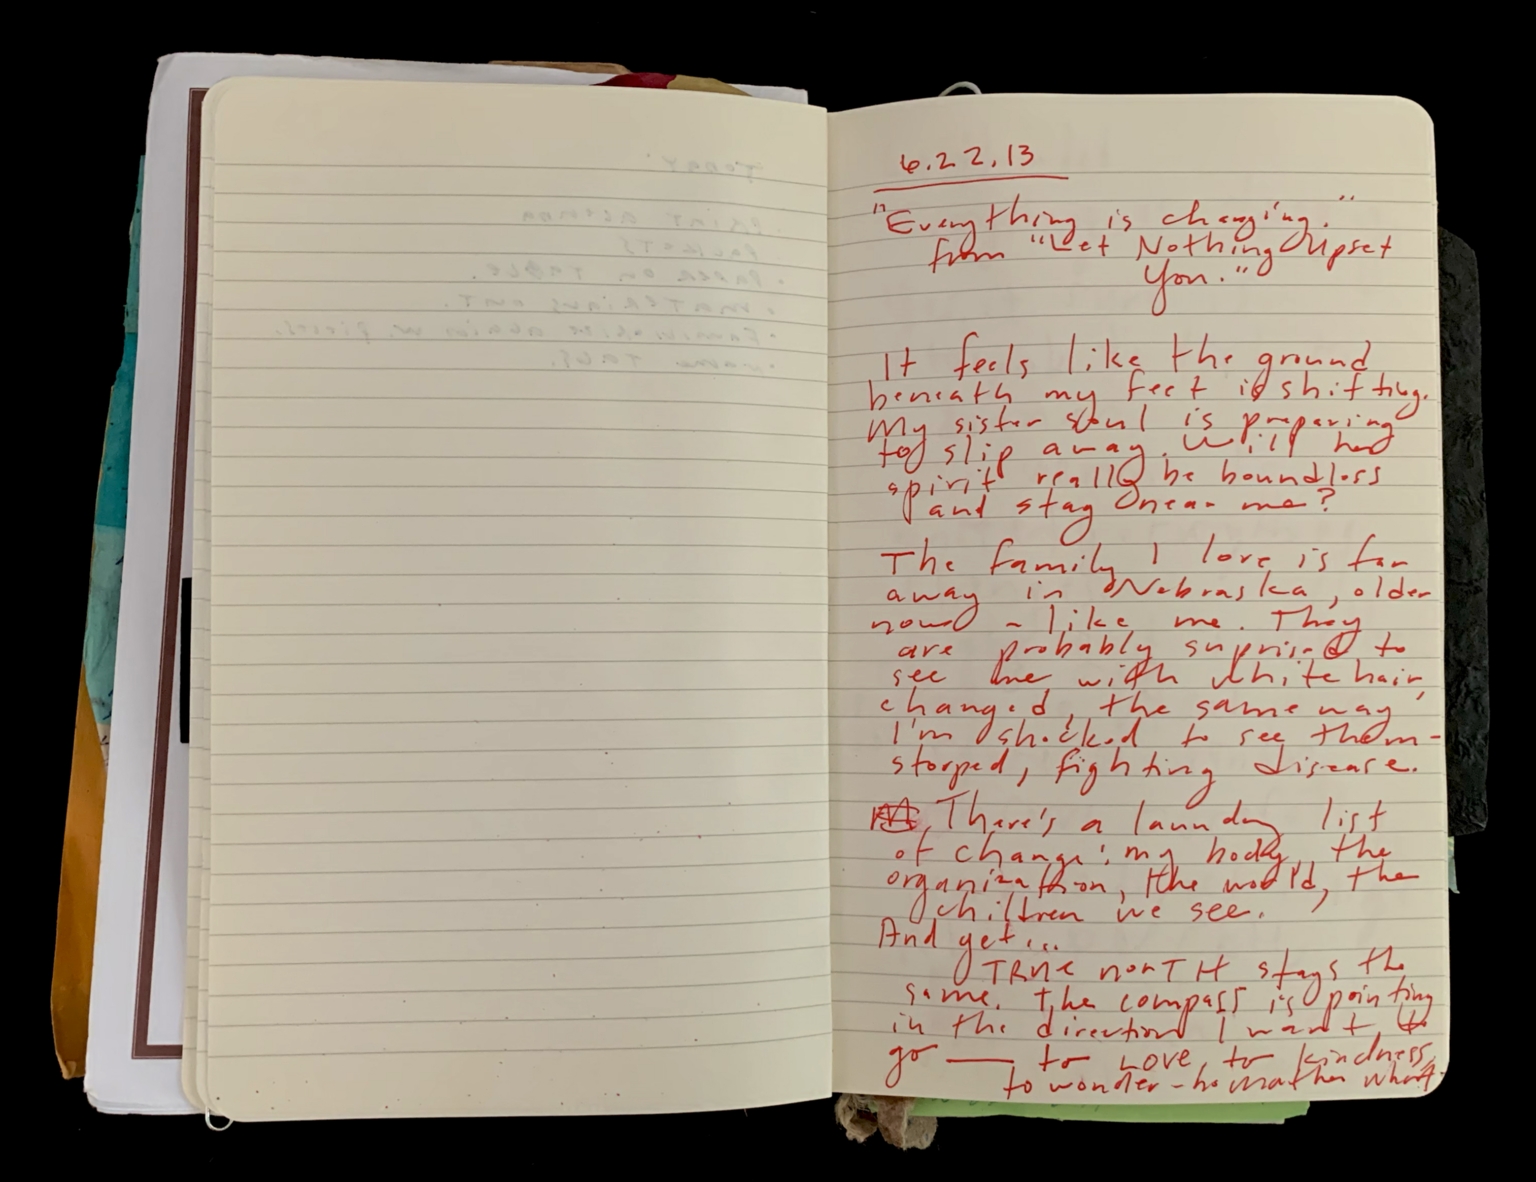 6.22.13
"Everything is changing."
from "Let Nothing Upset
You."
It feels like the ground
beneath my feet is shifting.
My sister soul is preparing
to slip away. Will her
spirit really be boundless
and stay near me?
The family I love is far
away in Nebraska, older
now - like me. They
are probably suprised to
see me with white hair,
changed, the same way
I'm shocked to see them-
stooped, fighting disease.
There's a laundry list
of change: my body, the
organization, the world, the
children we see.
And yet...
TRUE NORTH stays the
same. The compass is pointing
in the direction I want to
go — to LOVE, to kindness,
to wonder - no matter what.
Today
Paint
Packets
• Paper on Table.
• Materials out.
• name Tags.